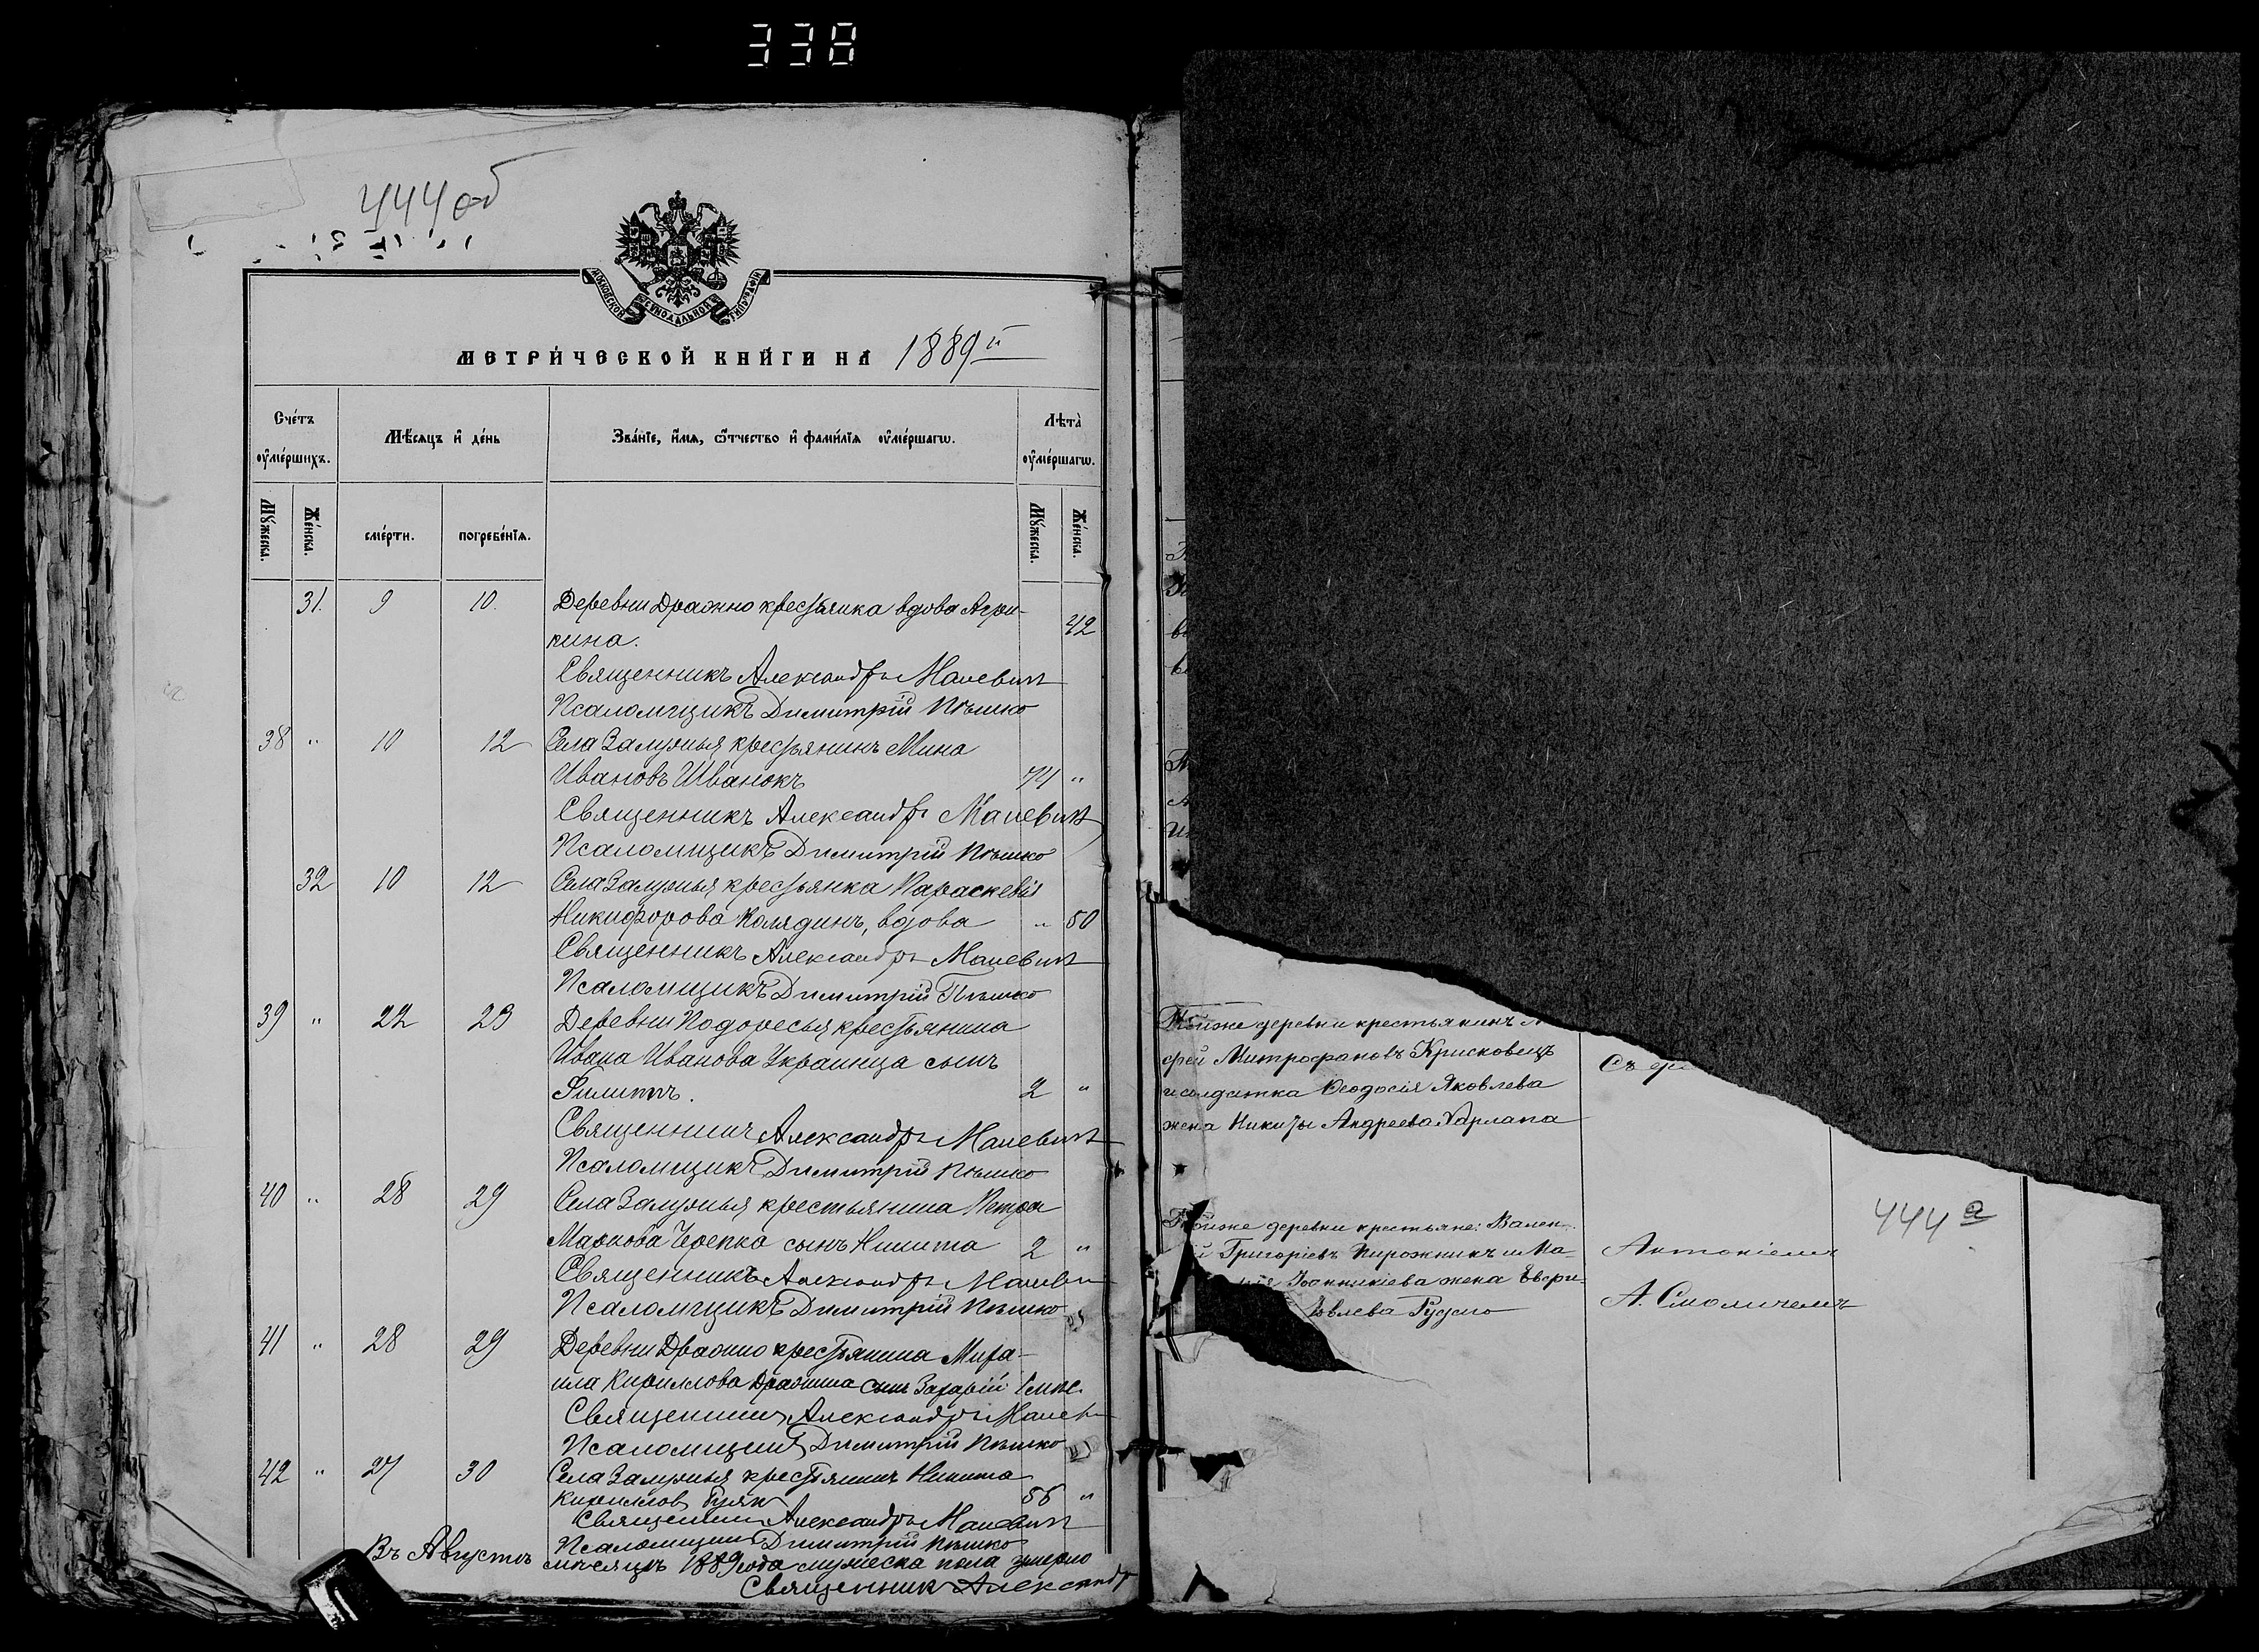 338
444 об
МОСКОВСКОЙ СѴНОДАЛЬНОЙ ТИПОГРАФІИ
МЕТРИ́ЧЕСКОЙ КНИ́ГИ НА 1889 й
Сче́тъ ᲂу҆ме́ршихъ.
Мѣ́сяцъ и҆ де́нь
Зва́нїе, и҆́мѧ, ѻ҆́тчество и҆ фами́лїѧ ᲂу҆ме́ршагѡ.
Лѣта̀ ᲂу҆ме́ршагѡ.
Мꙋ́жеска.
Же́нска.
сме́рти.
погребе́нїѧ.
Мꙋ́жеска.
Же́нска.
31. 9 10. Деревни Дражно крестьянка вдова Агри-
пина. 42
Священникъ Александръ Малевичъ
Псаломщикъ Димитрій Пѣшко
38 " 10 12 Села Залужья крестьянинъ Мина
Ивановъ Иванокъ 74 "
Священникъ Александръ Малевичъ
Псаломщикъ Димитрій Пѣшко
32 10 12 Села Залужья крестьянка Параскевія
Никифорова Колядинъ, вдова " 50
Священникъ Александръ Малевичъ
Псаломщикъ Димитрій Пѣшко
39 " 22 23 Деревни Подоресья крестьянина
Ивана Иванова Украинца сынъ
Филиппъ. 2 "
Священникъ Александръ Малевичъ
Псаломщикъ Димитрій Пѣшко
40 " 28 29 Села Залужья крестьянина Петра
Маркова Черепко сынъ Никита 2 "
Священникъ Александръ Малеви
Псаломщикъ Димитрій Пѣшко
41 " 28 29 Деревни Дражно крестьянина Миха-
ила Кириллова сынъ Захарій 1 мѣс.
Священникъ Александръ Малев
Псаломщикъ Димитрій Пѣшко
42 " 27 30 Села Залужья крестьянинъ Никита
Кирилловъ 56 "
Священникъ Александръ Малевичъ
Псаломщикъ Димитрій Пѣшко
Въ Августѣ мѣсяцѣ 1889 года мужеска пола умерло
Священникъ Александр
Тойже деревни крестьянинъ
фей Митрофановъ Крисковецъ
и солдатка Ѳеодосія Яковлева
жена Никиты Андреева Харлапа
Съ
444 а
Тойже деревни крестьяне: Вален-
й Григоріевъ Пирожникъ и Ма-
Іоанникіева жена Евфи-
Іовлева Рудько
Антоніемъ
А. Смоличемъ